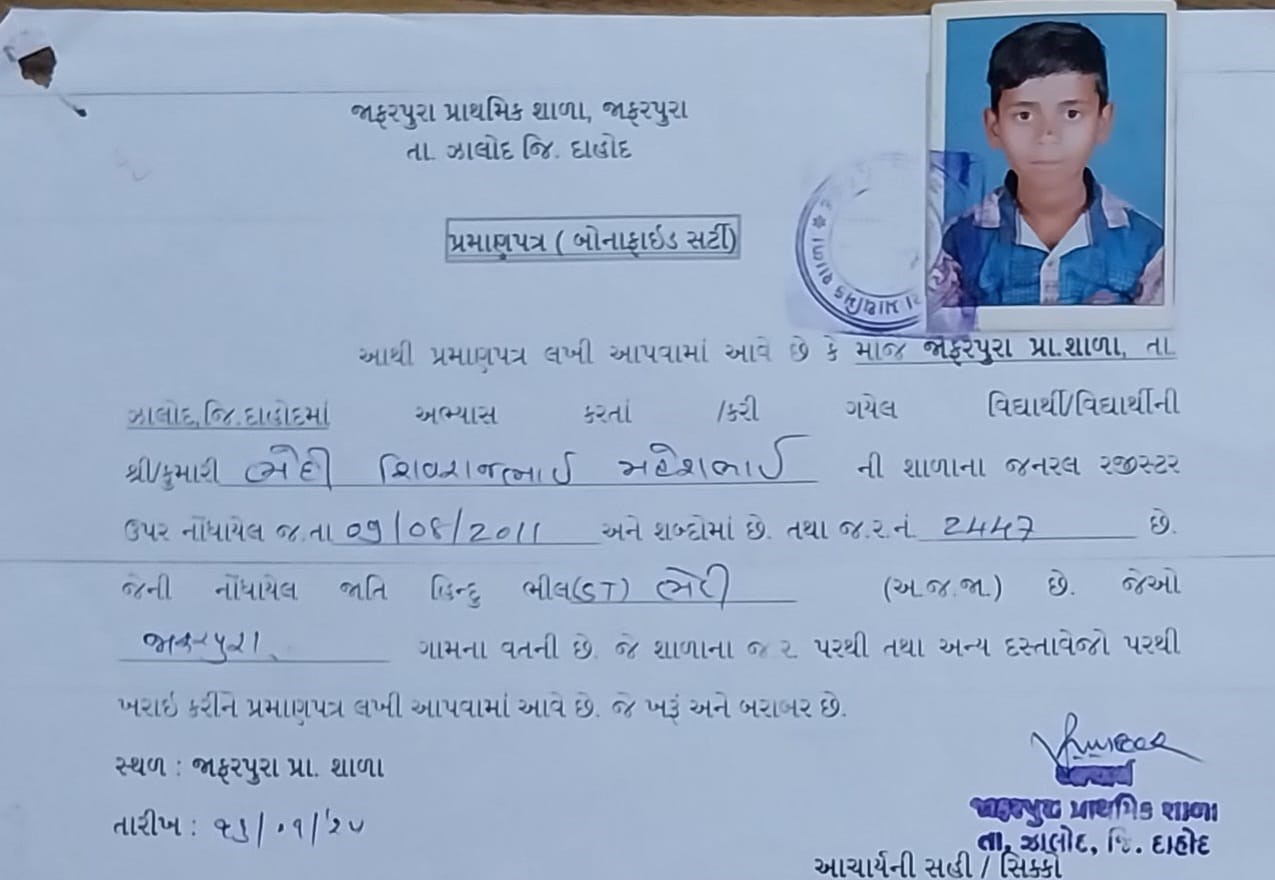 જાફરપુરા પ્રાથમિક શાળા, જાફરપુરા
તા. ઝાલોદ જિ. દાહોદ
પ્રમાણપત્ર ( બોનાફાઇડ સર્ટી)
આથી પ્રમાણપત્ર લખી આપવામાં આવે છે કે માજ જાફરપુરા પ્રા.શાળા, તા.
ઝાલોદ,જિ.દાહોદમાં અભ્યાસ કરતાં /કરી ગયેલ વિદ્યાર્થી/વિદ્યાર્થીની
શ્રી/કુમારી શિવરાજભાઈ મહેશભાઈ ની શાળાના જનરલ રજીસ્ટર
ઉપર નોંધાયેલ જ.તા 09/08/2011 અને શબ્દોમાં છે. તથા જ.ર.નં. 2447 છે.
જેની નોંધાયેલ જાતિ હિન્દુ ભીલ(ST) (અ.જ.જા.) છે. જેઓ
જાફરપુરા ગામના વતની છે. જે શાળાના જ.ર. પરથી તથા અન્ય દસ્તાવેજો પરથી
ખરાઇ કરીને પ્રમાણપત્ર લખી આપવામાં આવે છે. જે ખરૂં અને બરાબર છે.
સ્થળ : જાફરપુરા પ્રા. શાળા
તારીખ :
જાફરપુરા પ્રાથમિક શાળા
તા. ઝાલોદ, જિ. દાહોદ
આચાર્યની સહી / સિક્કો